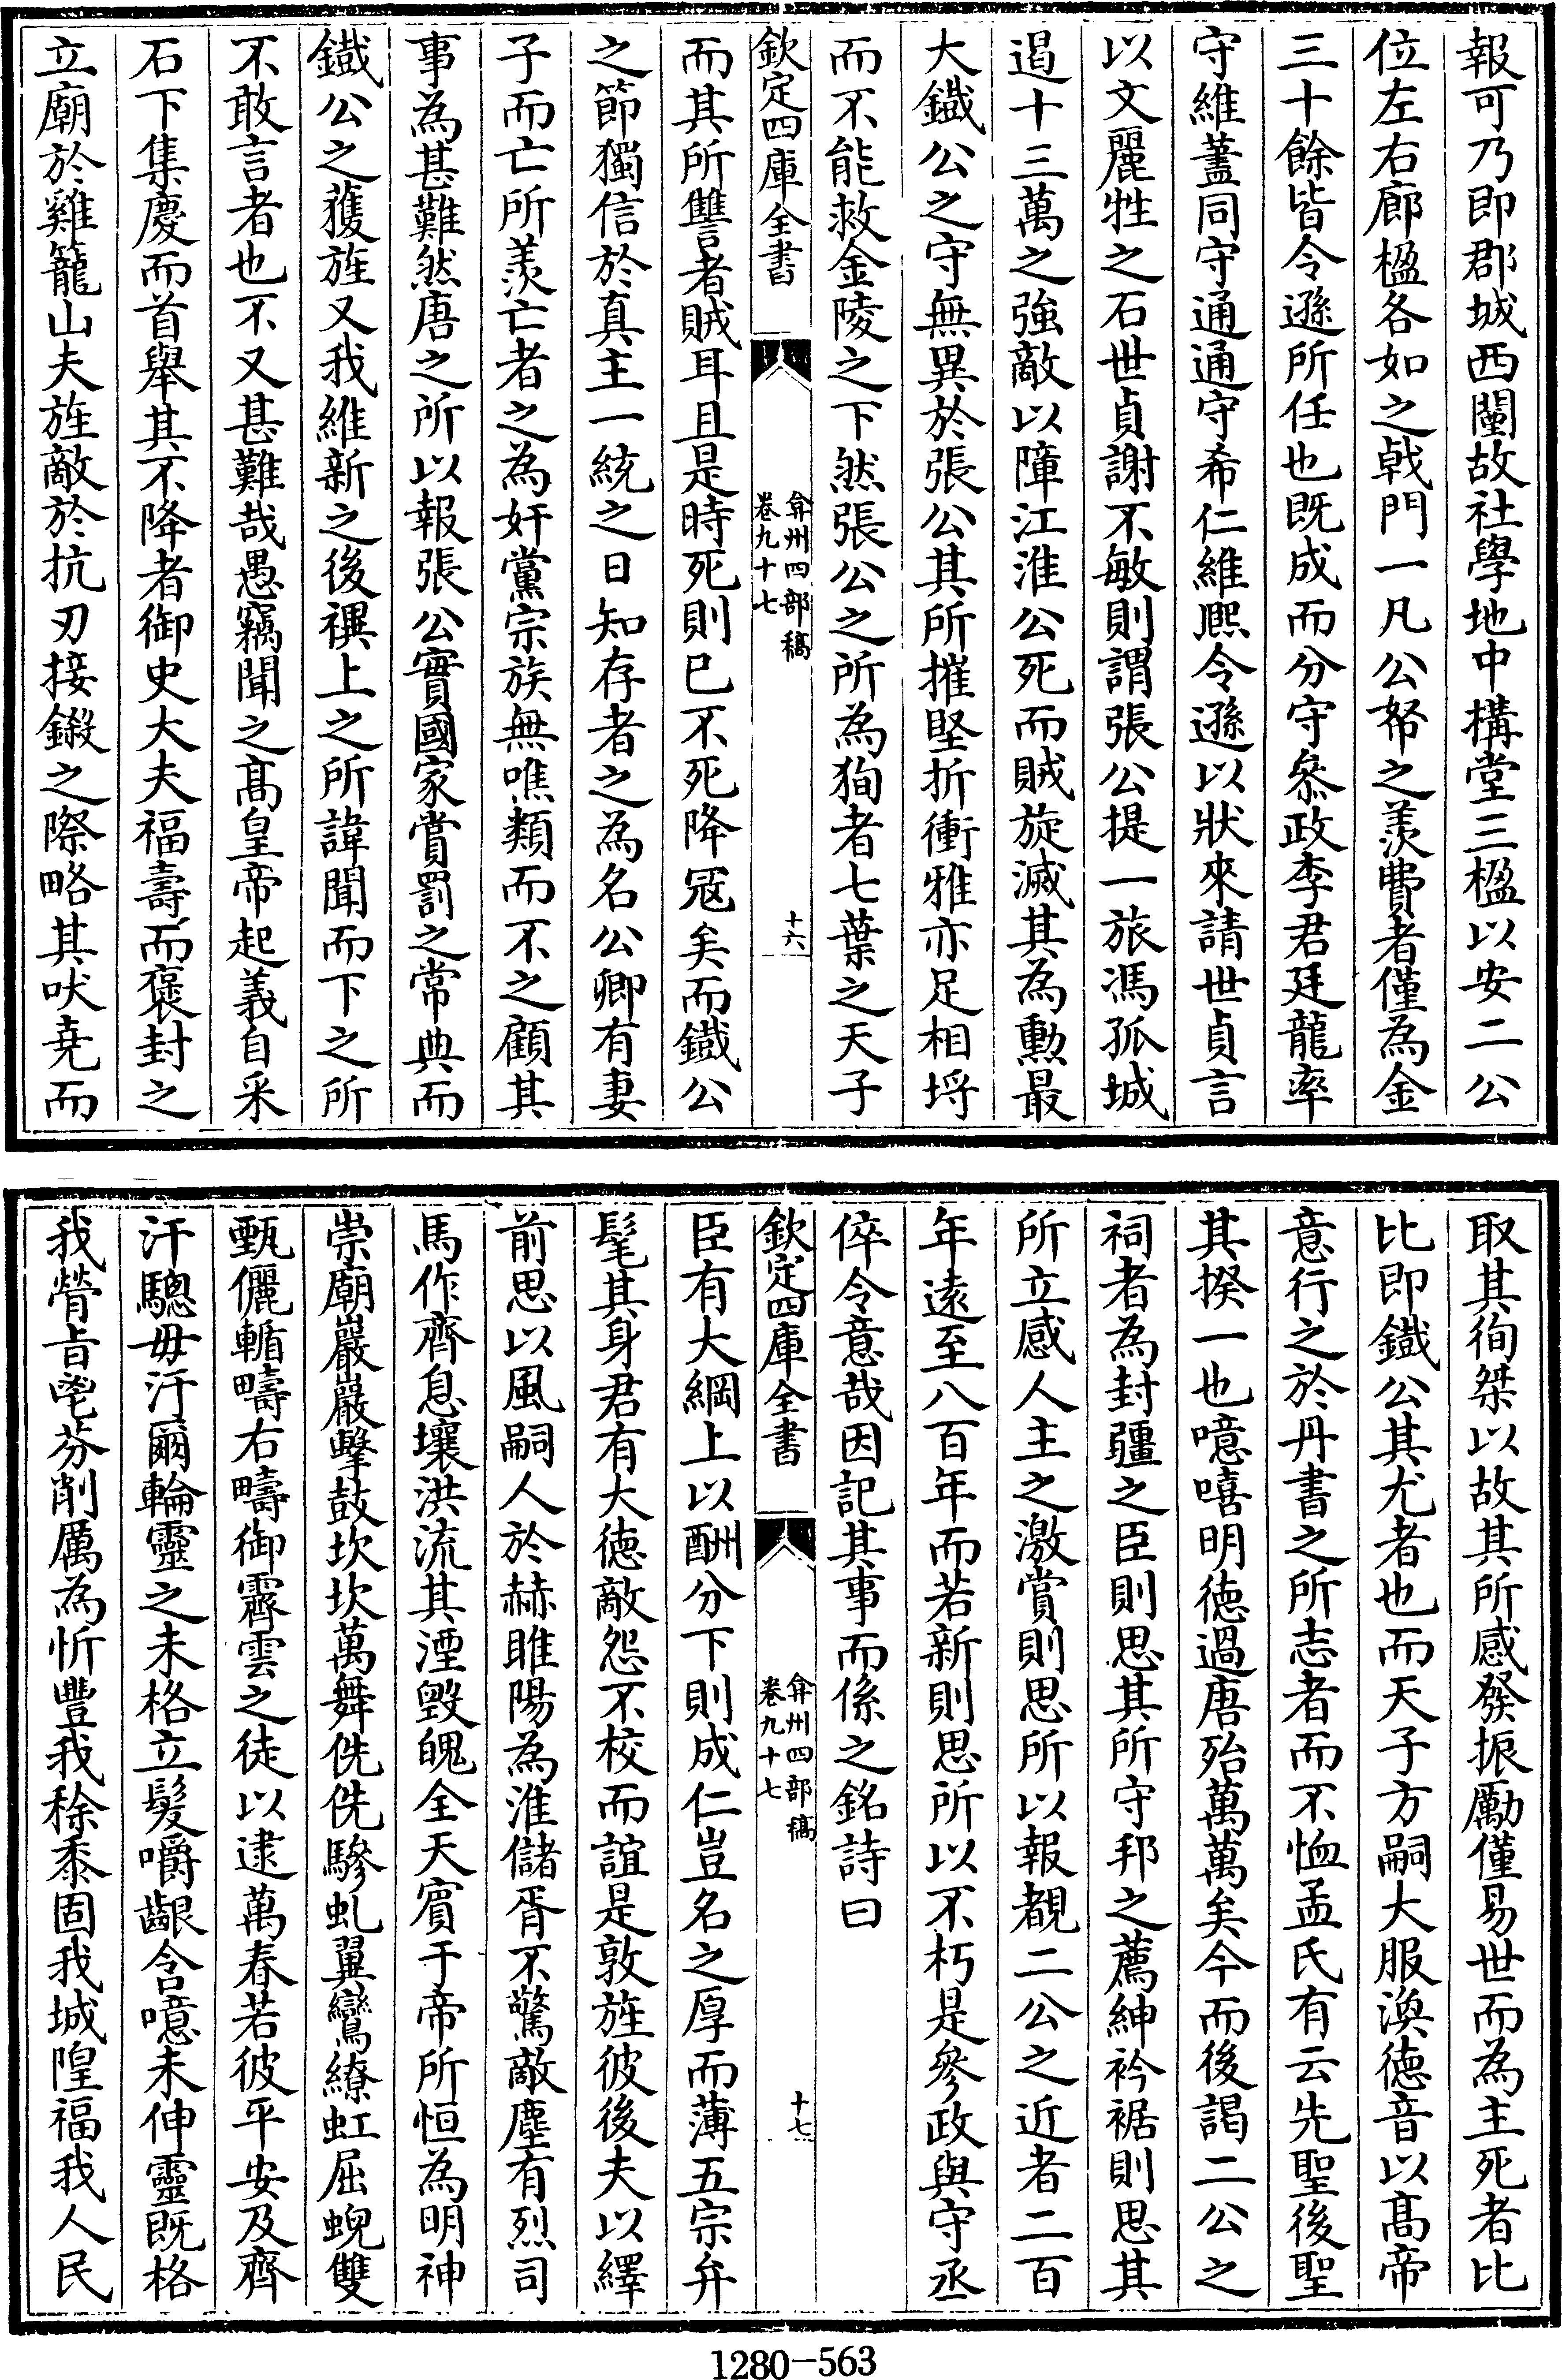 報可乃即郡城西闉故社學地中構堂三楹以安二公
位左右廊楹各如之㦸門一凡公帑之羨費者僅為金
三十餘皆令遜所任也既成而分守叅政李君廷龍率
守維藎同守通通守希仁維熈令遜以狀來請世貞言
以文麗牲之石世貞謝不敏則謂張公提一旅馮孤城
遏十三萬之強敵以障江淮公死而賊旋滅其為勲最
大鐵公之守無異於張公其所摧堅折衝雅亦足相埒
而不能救金陵之下然張公之所為狥者七葉之天子
欽定四庫全書
弇州四部稿
卷九十七
十六
而其所讐者賊耳且是時死則已不死降冦矣而鐵公
之節獨信於真主一統之日知存者之為名公卿有妻
子而亡所羨亡者之為奸黨宗族無噍類而不之顧其
事為甚難然唐之所以報張公實國家賞罰之常典而
鐵公之獲旌又我維新之後禩上之所諱聞而下之所
不敢言者也不又甚難哉愚竊聞之髙皇帝起義自采
石下集慶而首舉其不降者御史大夫福壽而褒封之
立廟於雞籠山夫旌敵於抗刃接鍛之際略其吠堯而
取其徇桀以故其所感發振勵僅易世而為主死者比
比即鐵公其尤者也而天子方嗣大服渙徳音以髙帝
意行之於丹書之所志者而不恤孟氏有云先聖後聖
其揆一也噫嘻明徳過唐殆萬萬矣今而後謁二公之
祠者為封疆之臣則思其所守邦之薦紳衿裾則思其
所立感人主之激賞則思所以報覩二公之近者二百
年遠至八百年而若新則思所以不朽是參政與守丞
倅令意哉因記其事而係之銘詩曰
欽定四庫全書
弇州四部稿
卷九十七
十七
臣有大綱上以酬分下則成仁豈名之厚而薄五宗弁
髦其身君有大徳敵怨不校而誼是敦旌彼後夫以繹
前思以風嗣人於赫睢陽為淮儲胥不驚敵塵有烈司
馬作齊息壤洪流其湮毁魄全天賓于帝所恒為明神
崇廟巖巖擊鼓坎坎萬舞侁侁驂虬翼鸞繚虹屈蜺雙
甄儷輴疇右疇御霽雲之徒以逮萬春若彼平安及齊
汗驄毋汙爾輪靈之未格立髮嚼齦含噫未伸靈既格
我膋㫖鬯芬削厲為忻豐我稌黍固我城隍福我人民
1280—563